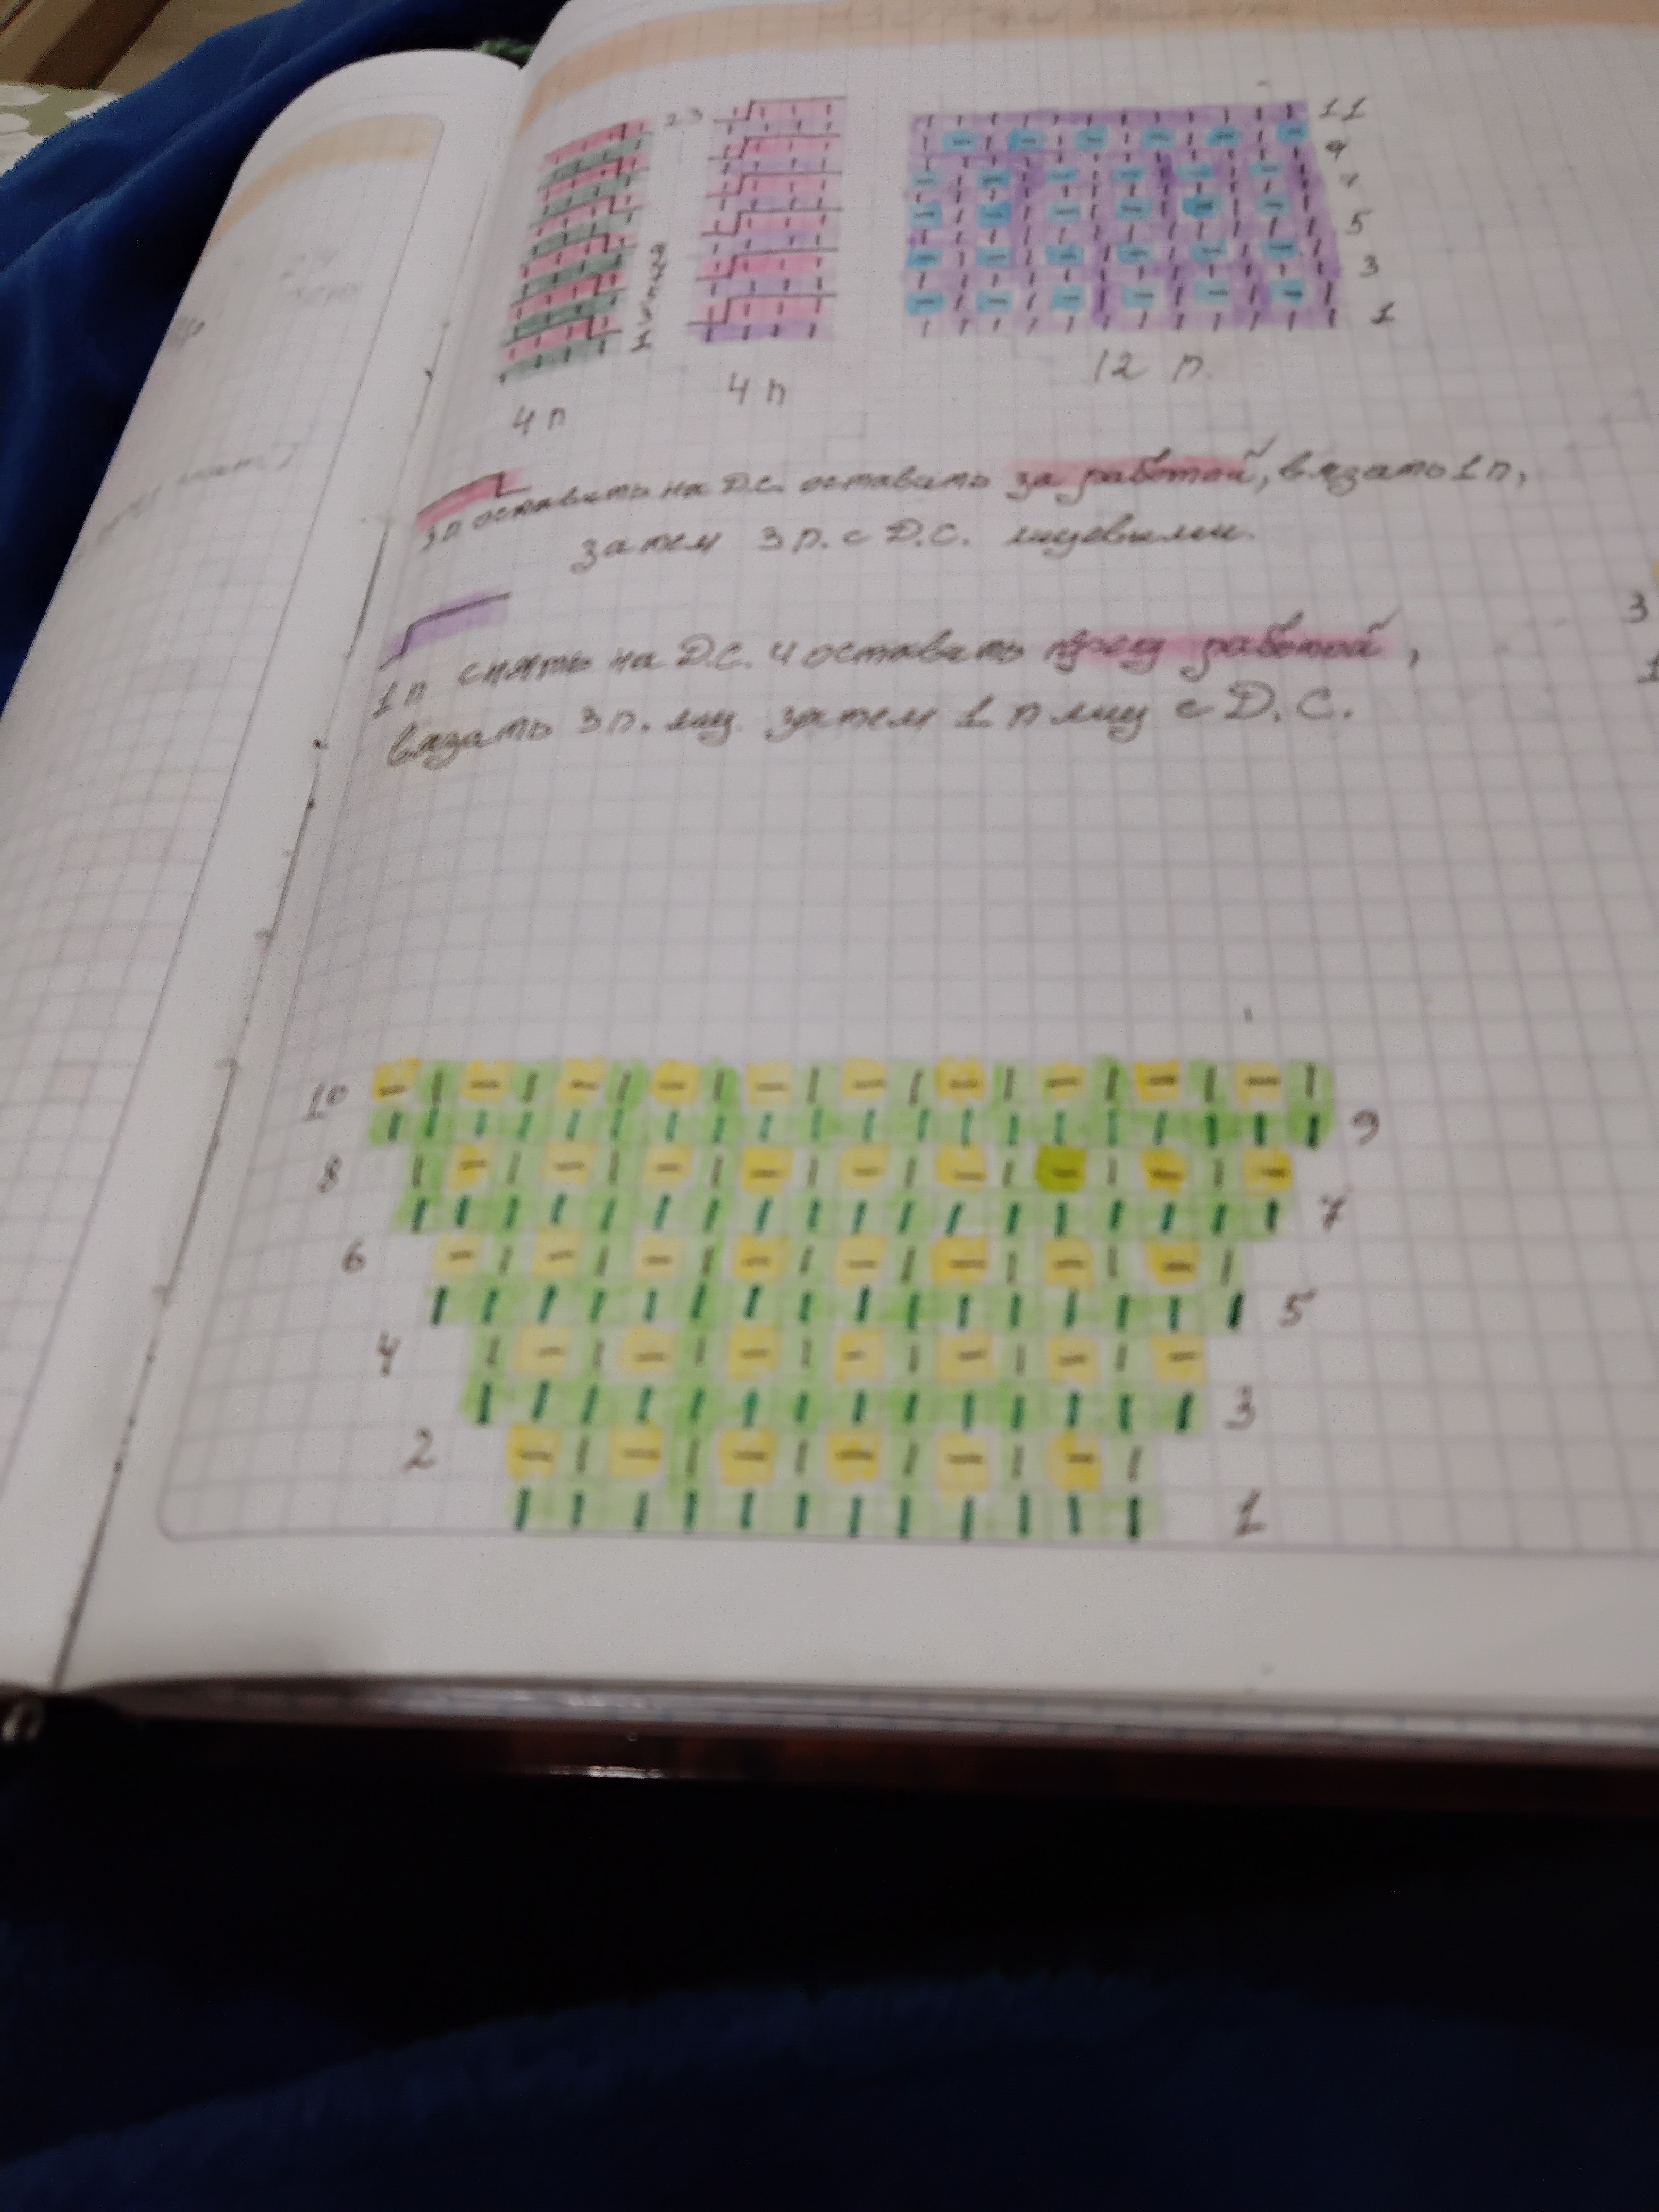 23
11
9
7
5
3
1
4 п
4 п
12 п.
3п оставить на Д.С. оставить за работой, вязать 1п,
затем 3 п. с Д.С. лицевыми.
1п снять на Д.С. и оставить пред работой,
вязать 3п. лиц. затем 1 п лиц с Д.С.
3
1
10
9
8
7
6
5
4
3
2
1